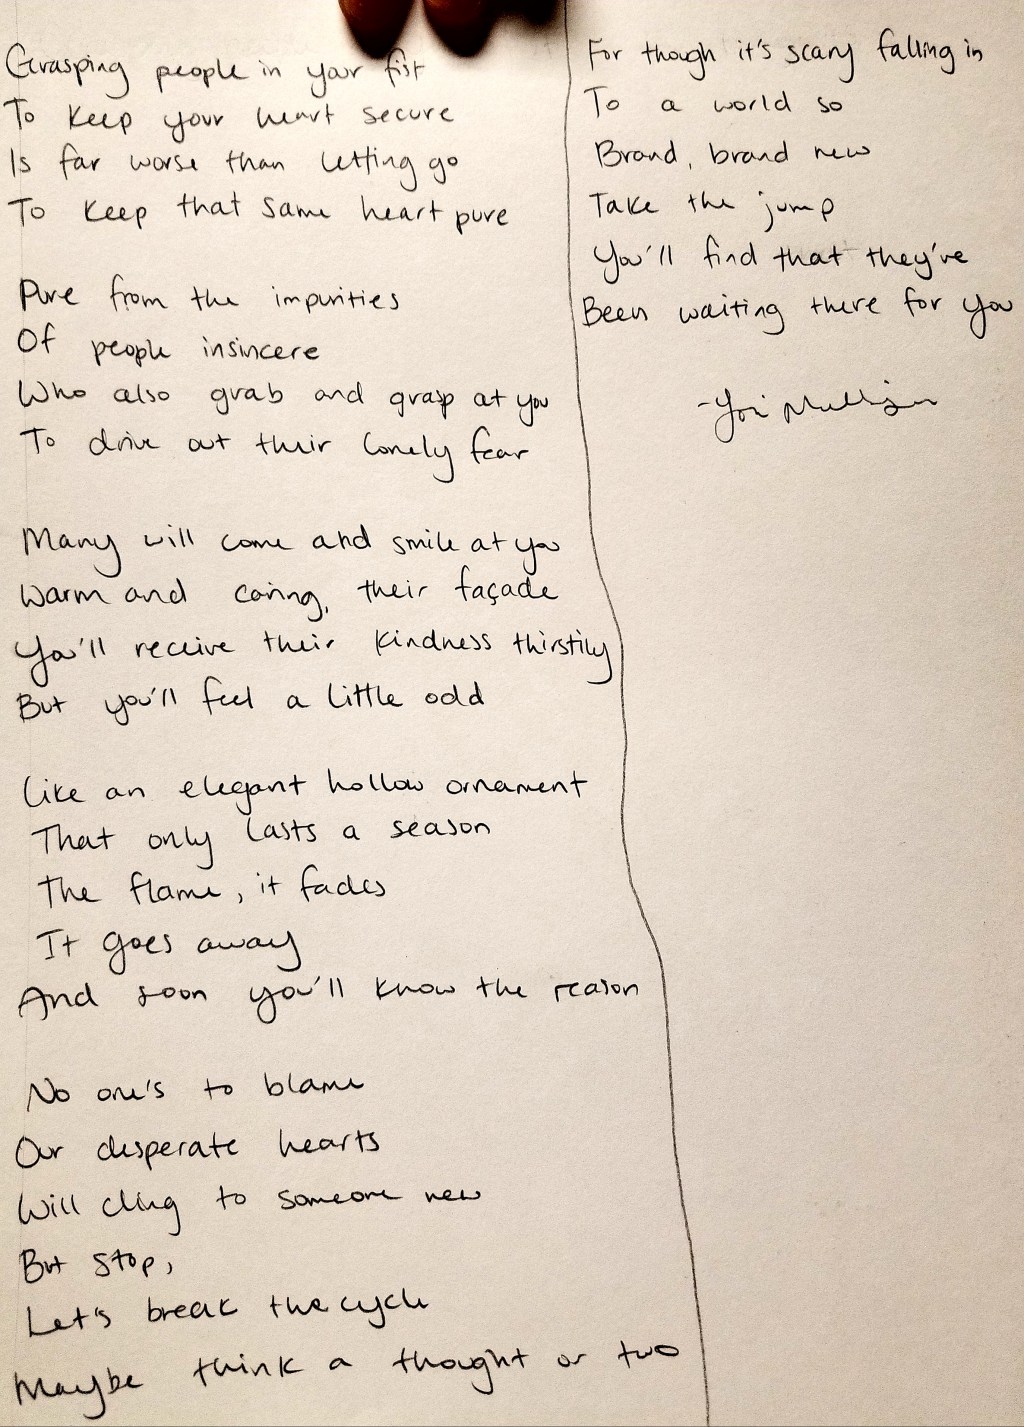 Grasping people in your fist
To keep your heart secure
Is far worse than letting go
To keep that same heart pure
Pure from the impurities
Of people insincere
Who also grab and grasp at you
To drive out their lonely fear
Many will come and smile at you
Warm and caring, their façade
You'll receive their kindness thirstily
But you'll feel a little odd
Like an elegant hollow ornament
That only lasts a season
The flame, it fades
It goes away
And soon you'll know the reason
No one's to blame
Our desperate hearts
Will cling to someone new
But stop,
Let's break the cycle
Maybe think a thought or two
For though it's scary falling in
To a world so
Brand, brand new
Take the jump
You'll find that they've
Been waiting there for you
-Yori Mulligan